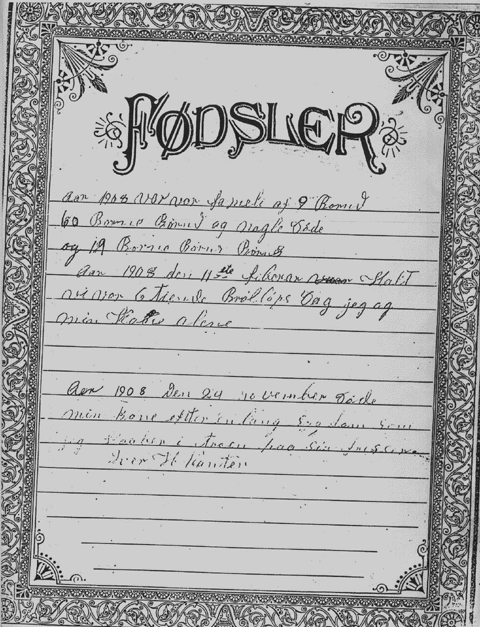 FØDSLER
aar 1908 var vor fameli af 9 Børn
60 Børns Børn og nogle Døde
og 19 Børns Børns Børn
Aar 1908 den 11te
vi vor 6 tiende Bröllops Dag jeg og
min alene
Aar 1908 Den 24 november Døde
min kone efter en lang sygdom som
jeg haaber i troen paa sin frelser
Iver H